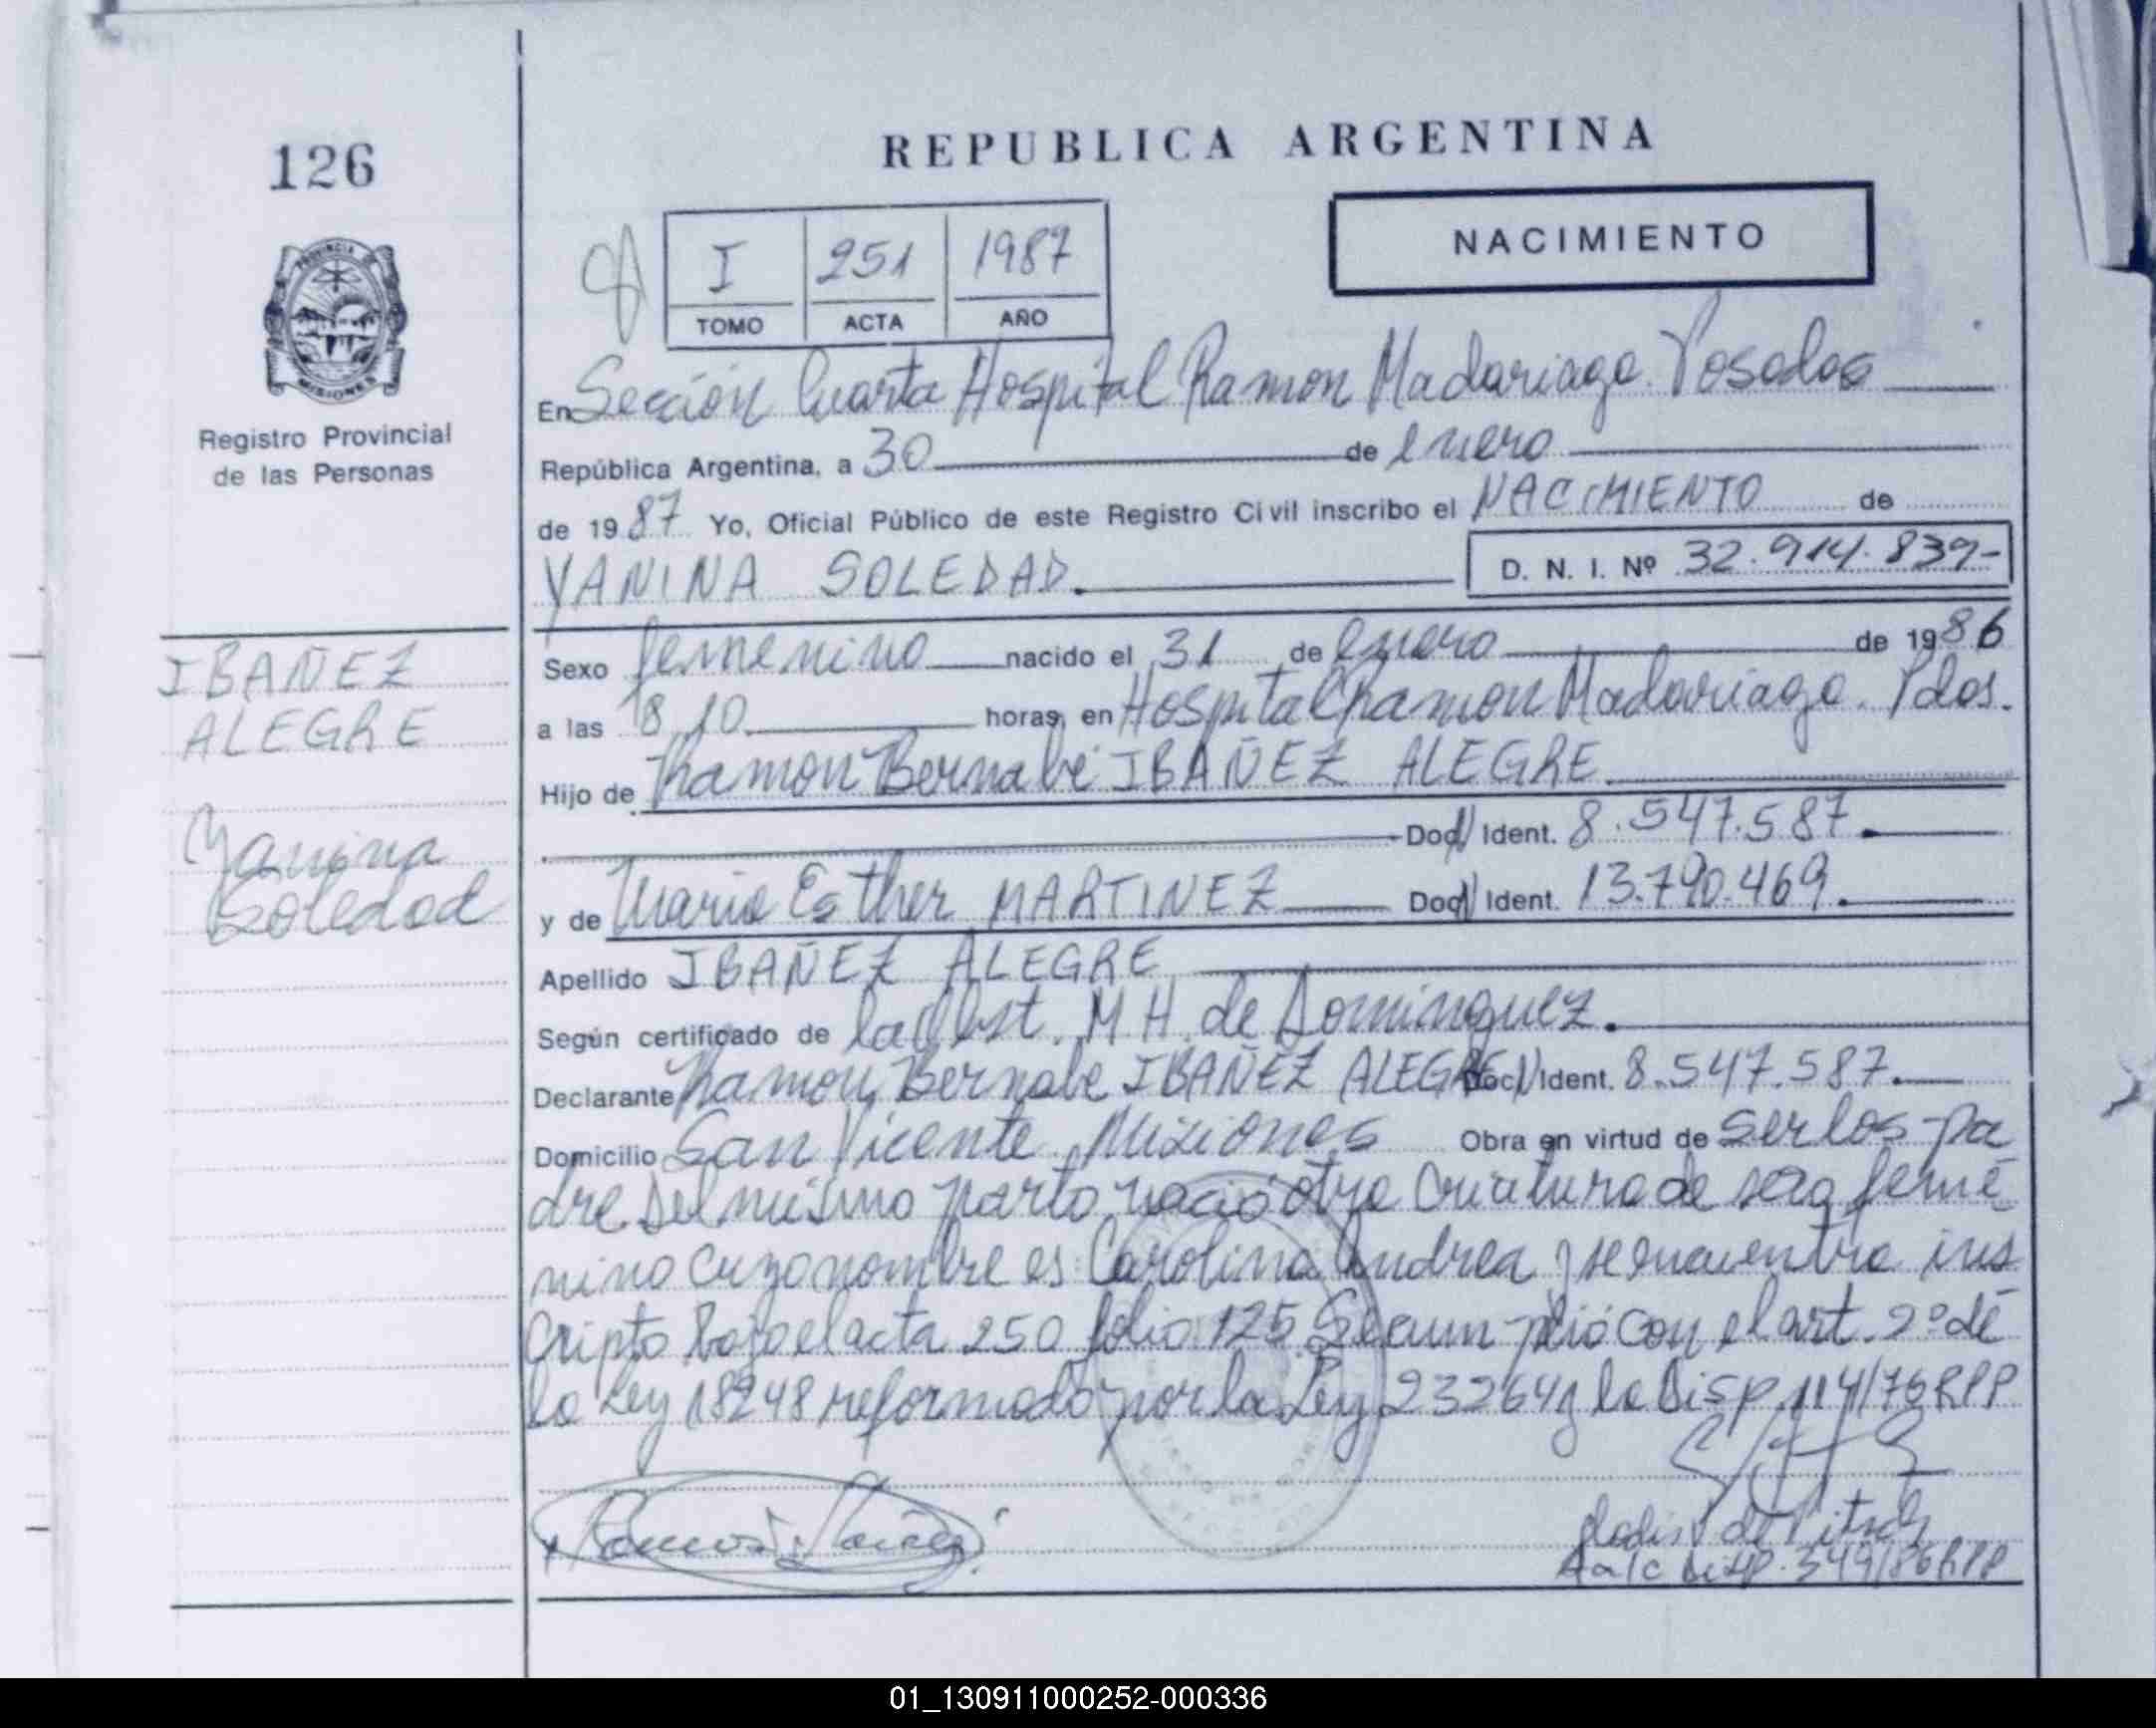 126
PROVINCIA DE
MISIONES
Registro Provincial
de las Personas
IBAÑEZ
ALEGRE
Yanina
Soledad
REPUBLICA ARGENTINA
I 251 1987
TOMO ACTA AÑO
NACIMIENTO
En Sección Cuarta Hospital Ramon Madariaga. Posadas
República Argentina, a 30 de enero
de 1987 Yo, Oficial Público de este Registro Civil inscribo el NACIMIENTO de
YANINA SOLEDAD. D. N. I. Nº 32.914.839-
Sexo femenino nacido el 31 de Enero de 1986
a las 18,10 horas, en Hospital Ramon Madariaga. Pdas.
Hijo de Ramon Bernabé IBAÑEZ ALEGRE.
Doc. Ident. 8.547.587.
y de Maria Esther MARTINEZ Doc. Ident. 13.790.469.
Apellido IBAÑEZ ALEGRE
Según certificado de la Obst. M H de Dominguez.
Declarante Ramon Bernabe IBAÑEZ ALEGRE Doc. Ident. 8.547.587.
Domicilio San Vicente, Misiones Obra en virtud de ser los pa
dre Del mismo parto nació otra criatura de sexo feme
nino cuyo nombre es: Carolina Andrea y se encuentra ins
cripto bajo el acta 250 folio 125. Se cumplió con el art. 2º de
la Ley 18248 reformado por la Ley 23264 y la Disp 114/76 RPP
de
Disp. 349/86 RPP
01_130911000252-000336